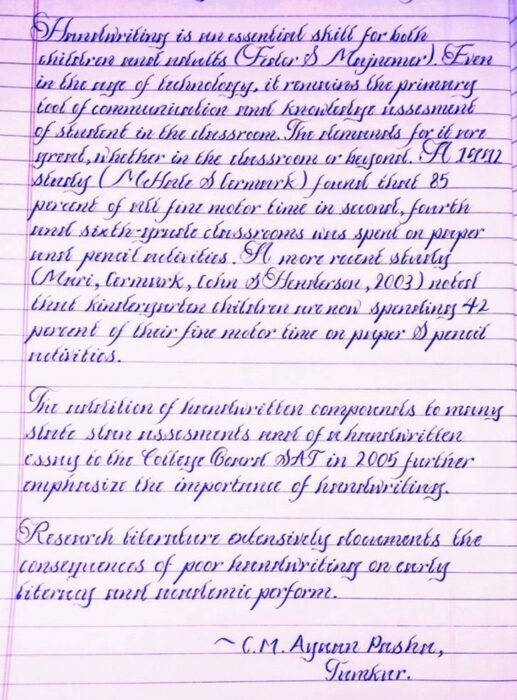 Handwriting is an essential skill for both
children and adults (Feder & Majnemer). Even
in the age of technology, it remains the primary
tool of communication and knowledge assesment
of student in the classroom. The demands for it are
great, whether in the classroom or beyond. A 1992
study (McHale & Cermark) found that 85
percent of all fine motor time in second, fourth
and sixth-grade classrooms was spent on paper
and pencil activities. A more recent study
(Marr, Cermark, Cohn & Henderson, 2003) noted
that kindergarten children are now spending 42
percent of their fine motor time on paper & pencil
activities.
The addition of handwritten compounds to many
state stan assesments and of a handwritten
essay to the College Board SAT in 2005 further
emphasize the importance of handwriting.
Research literature extensively documents the
consequences of poor handwriting on early
literacy and academic perform.
~ C.M. Ayaan Pasha,
Tumkur.